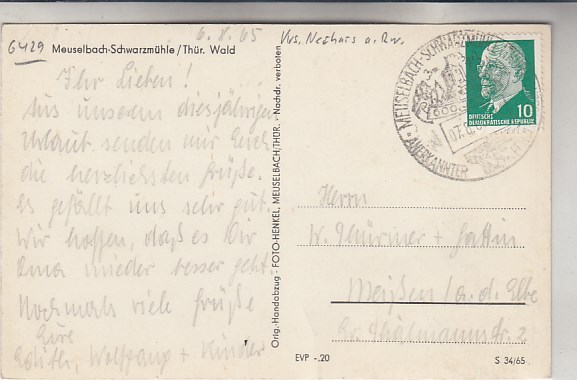 6429
6.8.65
Meuselbach-Schwarzmühle/Thür. Wald
Ihr Lieben!
Aus unserem diesjährigen
Urlaut senden wir Euch
die herzlichsten Grüße.
Es gefällt uns sehr gut.
Wir hoffen, daß es Dir
Oma wieder besser geht
Nochmals viele Grüße
Eure
Edith, Wolfgang + Kinder
Orig.-Handabzug - FOTO-HENKEL, MEUSELBACH/THÜR. - Nachdr. verboten
MEUSELBACH-SCHWARZMÜHLE
ANERKANNTER
DEUTSCHE
DEMOKRATISCHE REPUBLIK
10
Herrn
W. Thürmer + Gattin
Meißen/a.d. Elbe
Gr. Thälmannstr. 2
EVP -.20
S 34/65